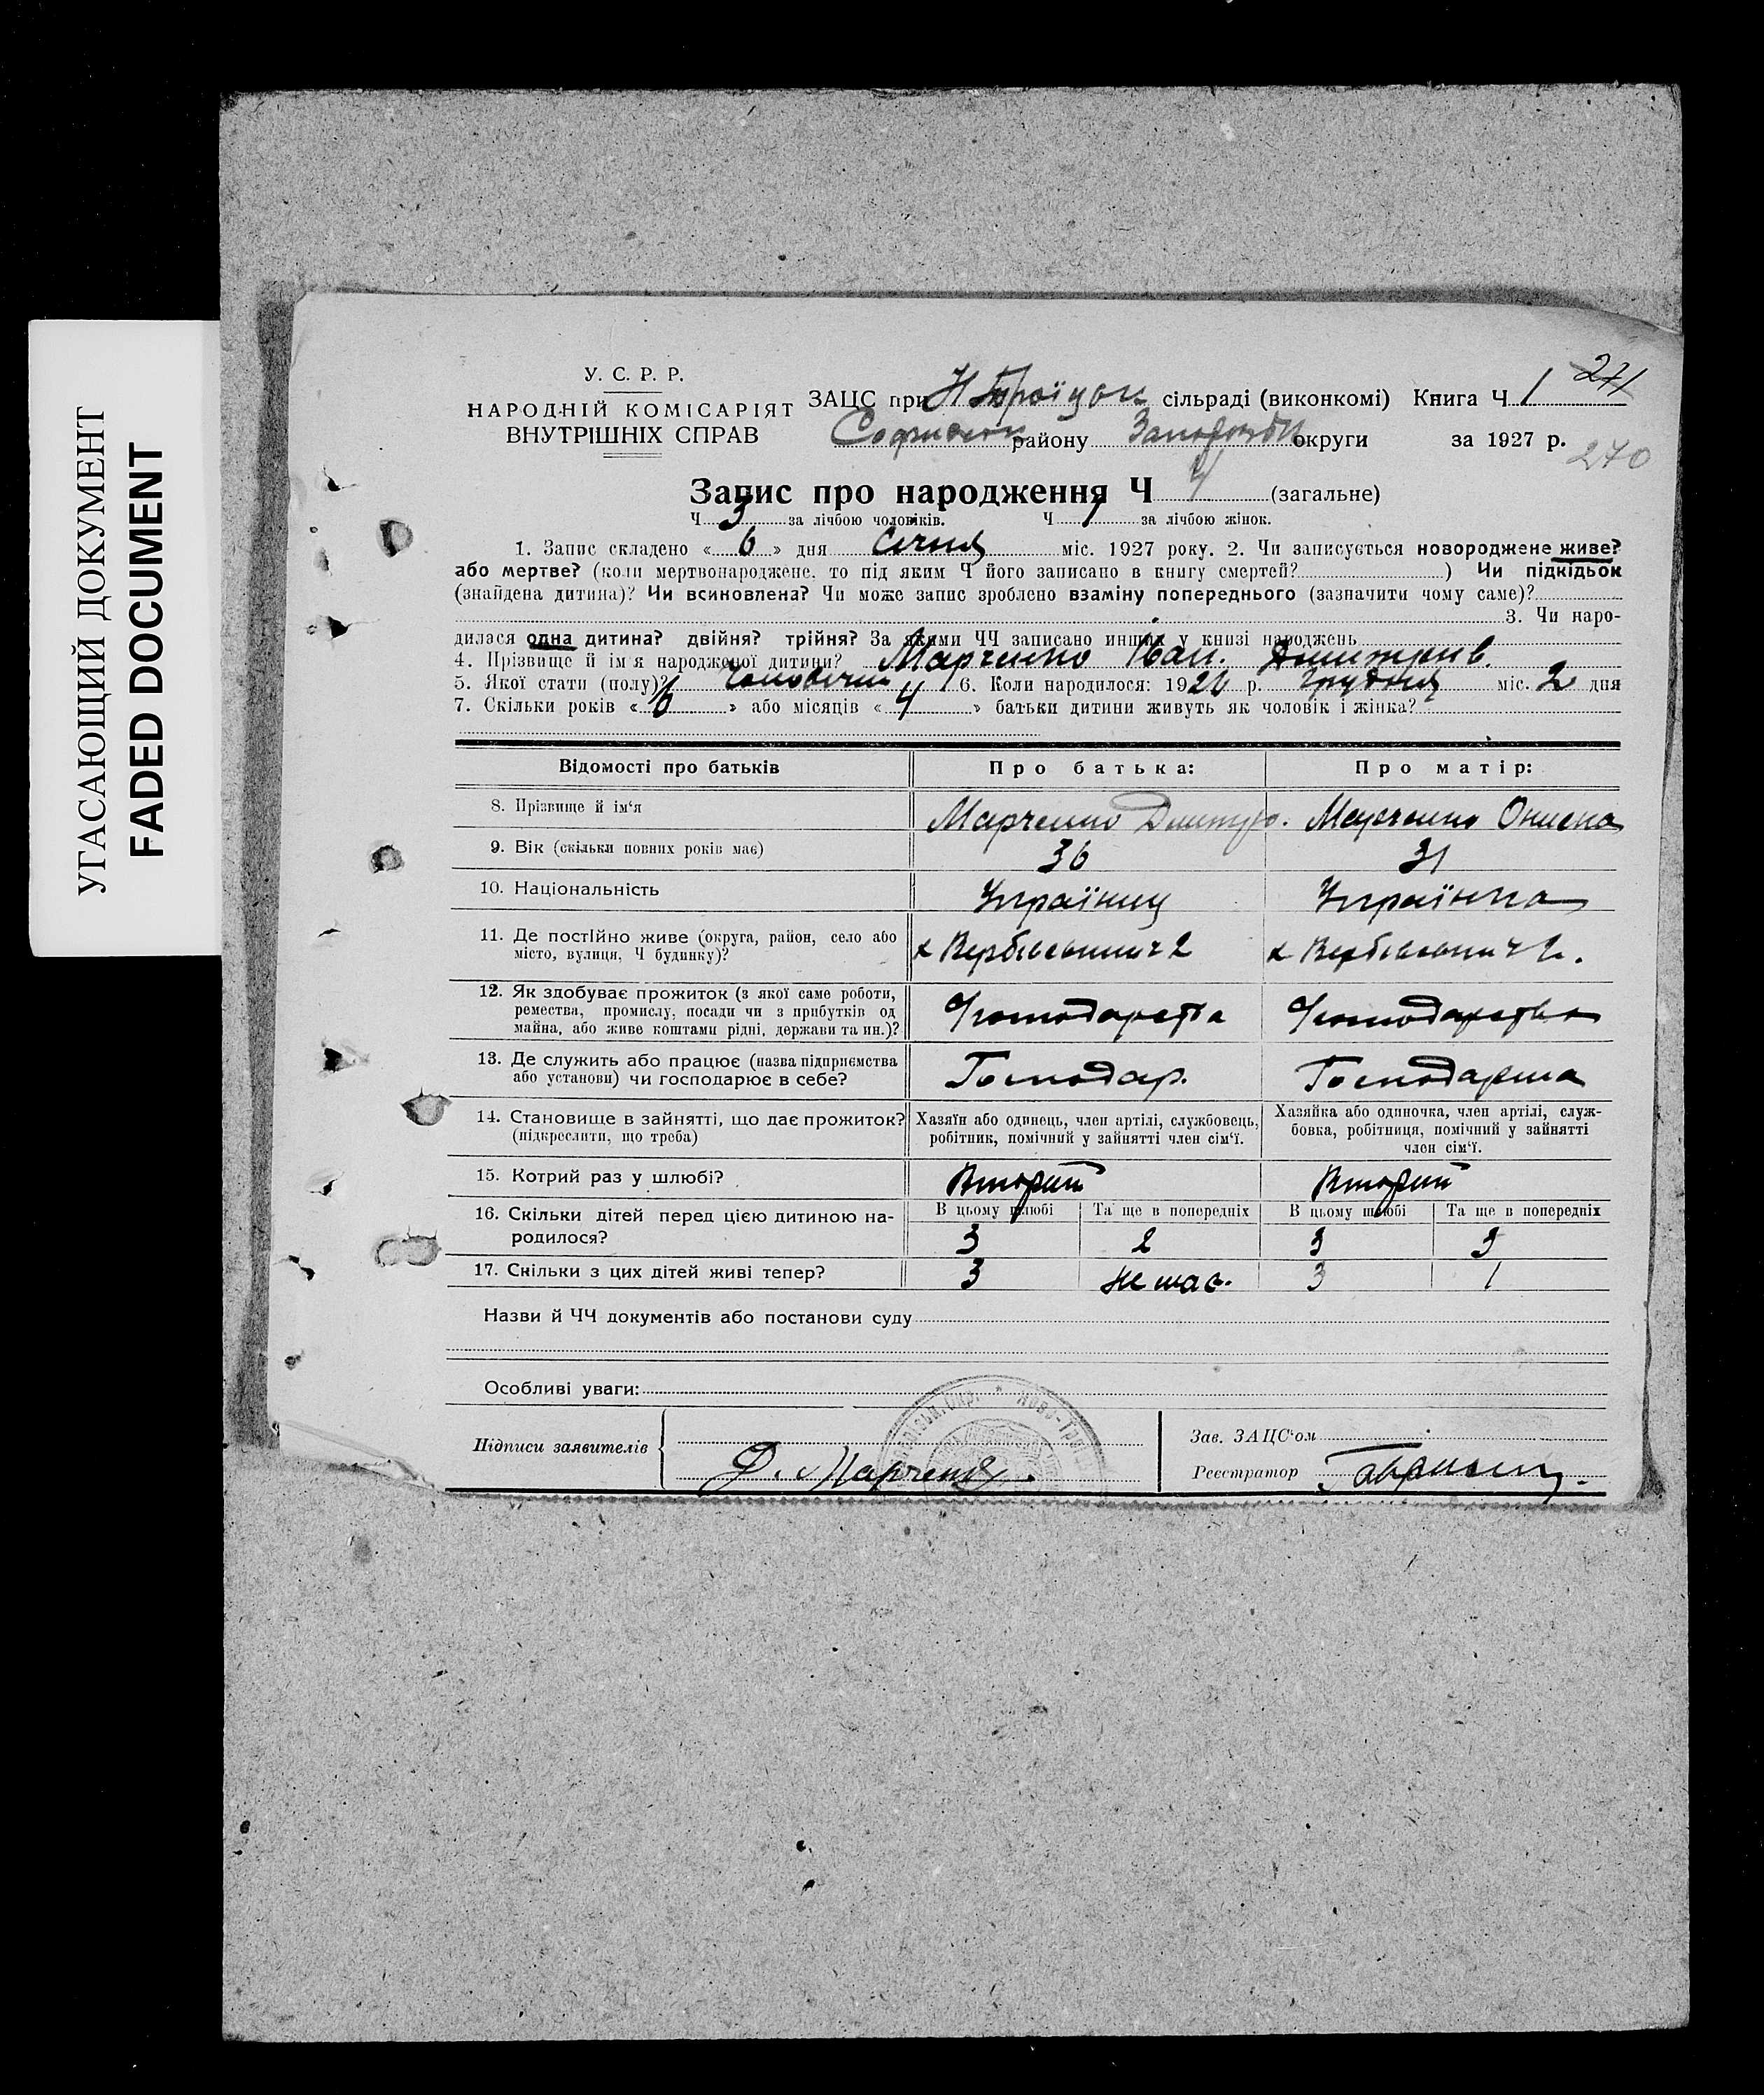 УГАСАЮЩИЙ ДОКУМЕНТ
FADED DOCUMENT
271
270
У. С. Р. Р.
НАРОДНІЙ КОМІСАРІЯТ
ВНУТРІШНІХ СПРАВ
ЗАЦС при Н Троїцьк сільраді (виконкомі) Книга Ч 1
району округи за 1927 р.
Запис про народження Ч 4 (загальне)
Ч 3 за лічбою чоловіків. Ч 1 за лічбою жінок.
1. Запис складено « 6 » дня Січня міс. 1927 року. 2. Чи записується новороджене живе?
або мертве? (коли мертвонароджене, то під яким Ч його записано в книгу смертей? ) Чи підкідьок
(знайдена дитина)? Чи всиновлена? Чи може запис зроблено взаміну попереднього (зазначити чому саме)?
3. Чи наро-
дилася одна дитина? двійня? трійня? За якими ЧЧ записано инших у книзі народжень
4. Прізвище й ім'я народженої дитини? Марченко Іван. Дмитрів.
5. Якої стати (полу)? Чоловічи 6. Коли народилося: 1926 р. Грудня міс. 2 дня
7. Скільки років « 6 » або місяців « 4 » батьки дитини живуть як чоловік і жінка?
Відомості про батьків Про батька: Про матір:
8. Прізвище й ім'я Марченко Дмитро. Марченко
9. Вік (скільки повних років має) 36 31
10. Національність Українец Українка
11. Де постійно живе (округа, район, село або
місто, вулиця, Ч будинку)?
12. Як здобуває прожиток (з якої саме роботи,
ремества, промислу, посади чи з прибутків од
майна, або живе коштами рідні, держави та ин.)? Господарства Господарства
13. Де служить або працює (назва підприємства
або установи) чи господарює в себе? Господар. Господарка
14. Становище в зайнятті, що дає прожиток?
(підкреслити, що треба)
Хазяїн або одинець, член артілі, службовець,
робітник, помічний у зайнятті член сім'ї.
Хазяйка або одиночка, член артілі, служ-
бовка, робітниця, помічний у зайнятті
член сім'ї.
15. Котрий раз у шлюбі? Вторий Вторий
16. Скільки дітей перед цією дитиною на-
родилося?
В цьому шлюбі Та ще в попередніх В цьому шлюбі Та ще в попередніх
3 2 3 3
17. Скільки з цих дітей живі тепер? 3 Немає. 3 1
Назви й ЧЧ документів або постанови суду
Особливі уваги:
Підписи заявителів
Д. Марченко.
Зав. ЗАЦС'ом
Реєстратор